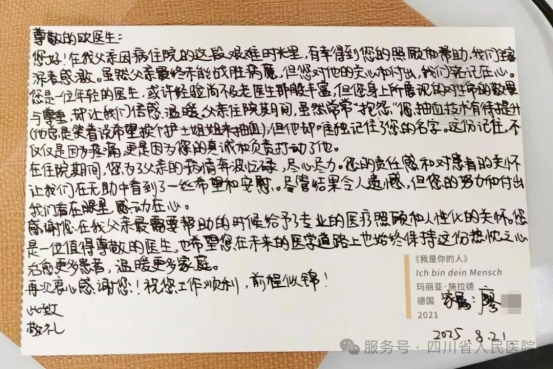 尊敬的欧医生：
您好！在我父亲因病住院的这段艰难时光里，有幸得到您的照顾和帮助，我们全家
深表感激。虽然父亲最终未能战胜病魔，但您对他的关心和付出，我们铭记在心。
您是一位年轻的医生，或许经验尚不如老医生那般丰富，但您身上所展现的对生命的敬畏
与尊重，却让我们倍感温暖。父亲住院期间，虽然常常"抱怨"您，抽血技术有待提升
（他总是笑着说希望换个护士姐姐来抽血），但他却牢牢记住了您的名字。这份记住，不
仅仅是因为疼痛，更是因为您的真诚和负责打动了他。
在住院期间，您为父亲的病情奔波忙碌，尽心尽力。您的责任感和对患者的关怀
让我们在无助中看到了一丝希望和安慰。尽管结果令人遗憾，但您的努力和付出
我们看在眼里，感动在心。
感谢您在我父亲最需要帮助的时候给予专业的医疗照顾和人性化的关怀。您
是一位值得尊敬的医生，也希望您在未来的医学道路上也始终保持这份热忱之心
治愈更多患者，温暖更多家庭。
再次衷心感谢您！祝您工作顺利，前程似锦！
此致
敬礼
《我是你的人》
Ich bin dein Mensch
玛丽亚·施拉德
德国
2021
家属：廖
2025 8.21
服务号·四川省人民医院